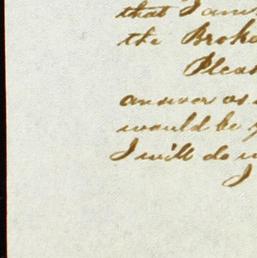 that I am
the Broke
Pleas
answer as
would be
I will do
I